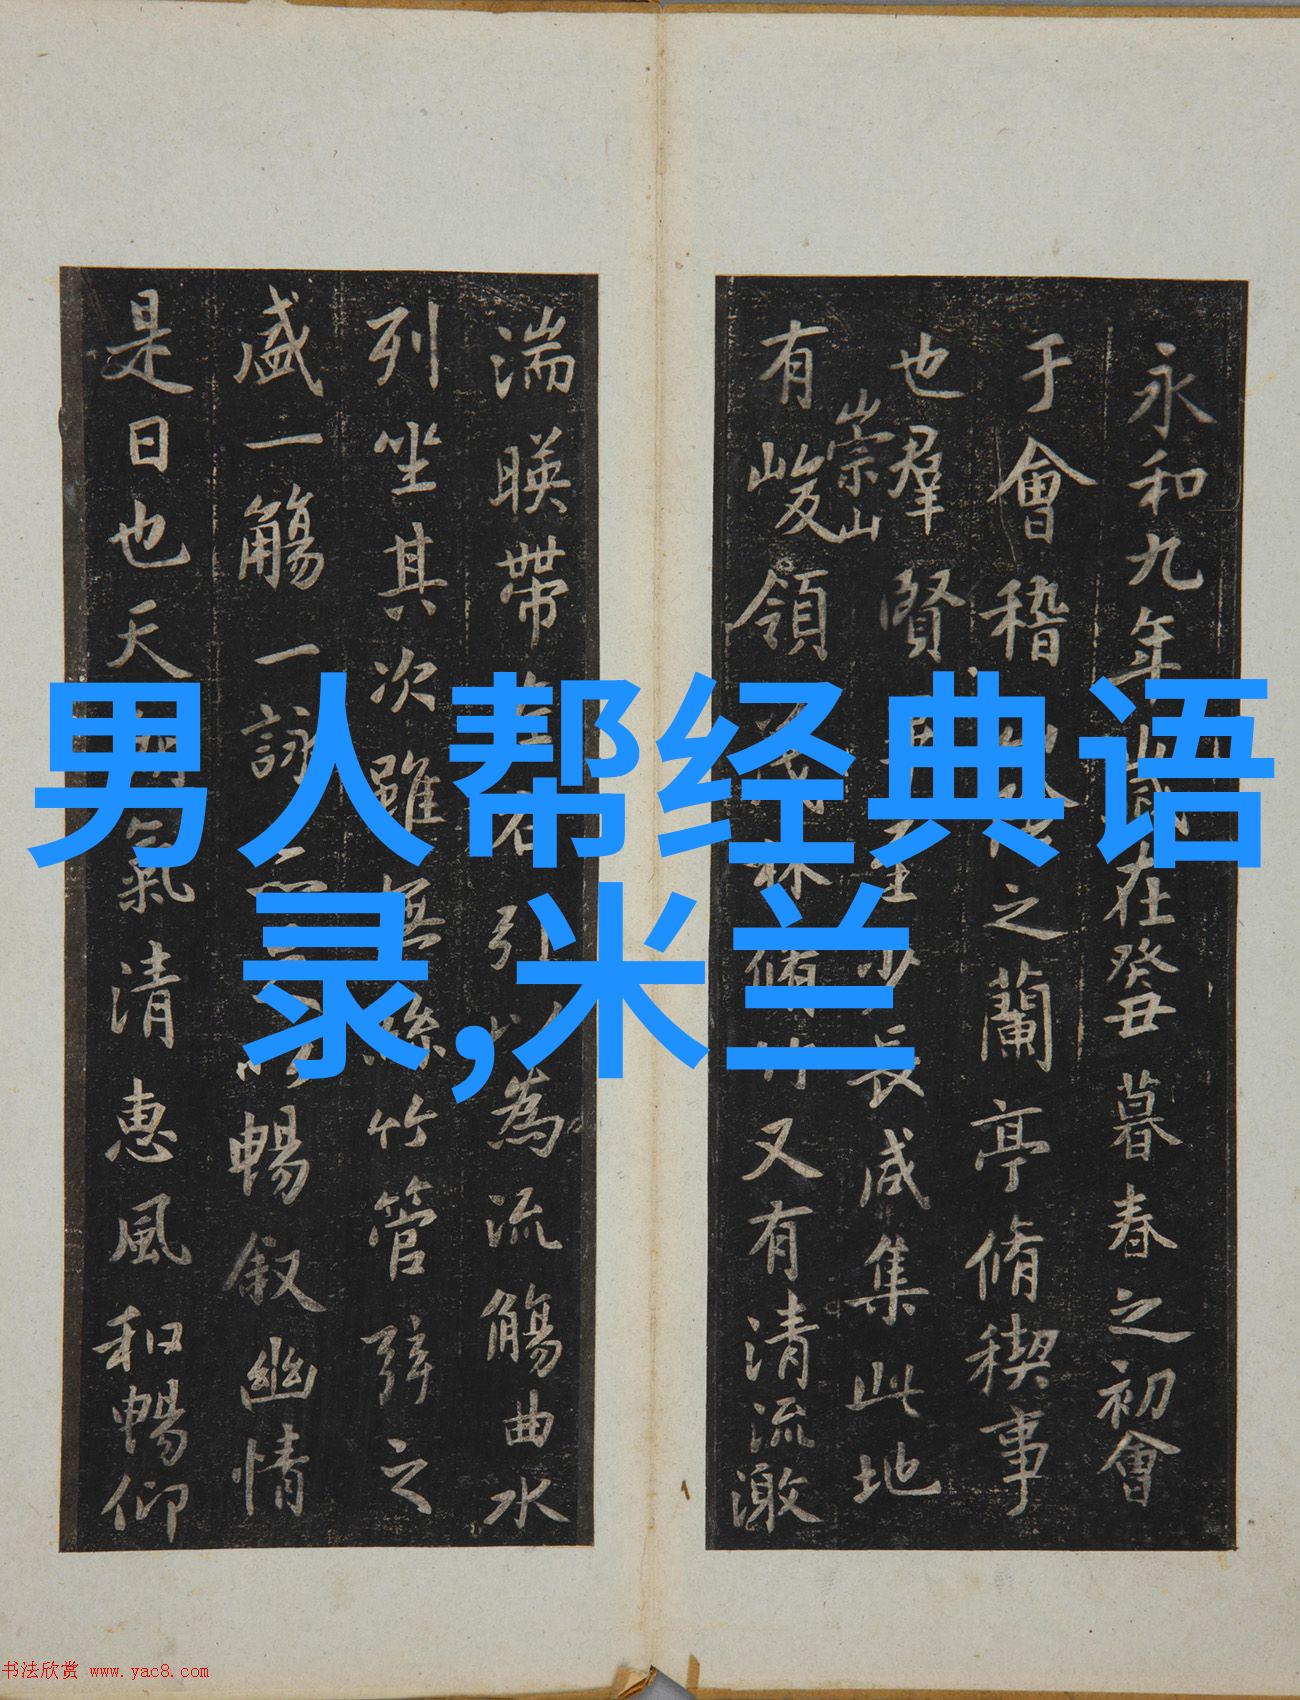 永和九年歲在癸丑暮春之初會
于會稽山陰之蘭亭脩稧事
也羣賢畢至少長咸集此地
崇山
有峻領茂林脩竹又有清流激
湍暎帶左右引以為流觴曲水
列坐其次雖無絲竹管弦之
盛一觴一詠亦足以暢叙幽情
是日也天朗氣清惠風和暢仰
男人帮经典语
录,米兰
书法欣赏 www.yac8.com